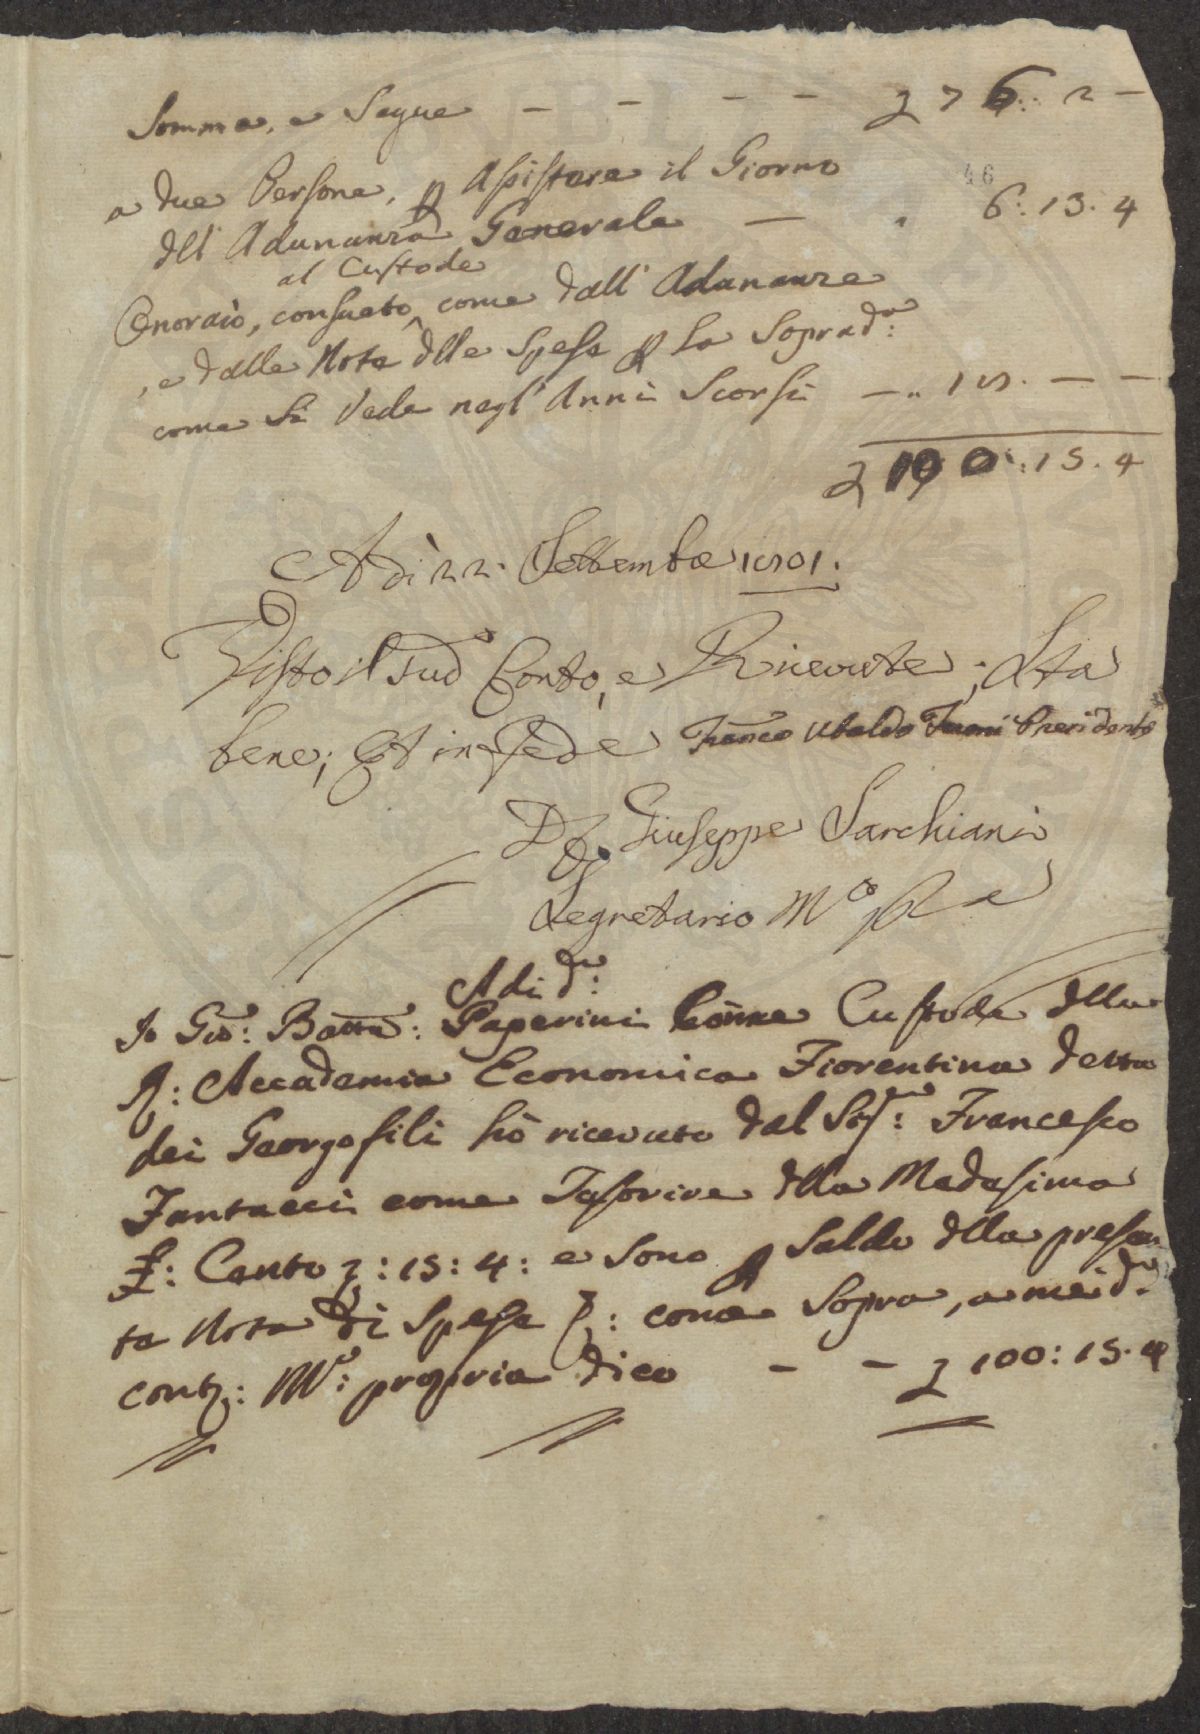 Somma, e Segue - - - - £ 76:: 2 -
46
a due Persone, p Assistere il Giorno
dll' Adunanza Generale - " 6: 13. 4
al Custode
Onoraio, consueto, come dall' Adunanze
, e dalle Note dlle Spese p La Soprad.a:
come Si Vede negl' Anni Scorsi -.. - -
£ 100: 15. 4
Adì 22. Settembre
Visto il Sud.o Conto, e Ricevute; Sta
bene; Et in fede Franco Ubaldo Presidente
D. Giuseppe Sarchiani
Segretario M.o pp.e
Adi d.o:
Io Gio: Batta: Paperini Come Custode della
R: Accademia Economica Fiorentina detta
dei Georgofili hò ricevuto dal Sig.e: Francesco
Fantacci come Tesorire dlla Medesima
£: Cento £: 15: 4: e Sono p Saldo dlla presen
te Nota di Spese : come Sopra, a me d.o
cont: M.o: propria dico - - £ 100: 15. 4